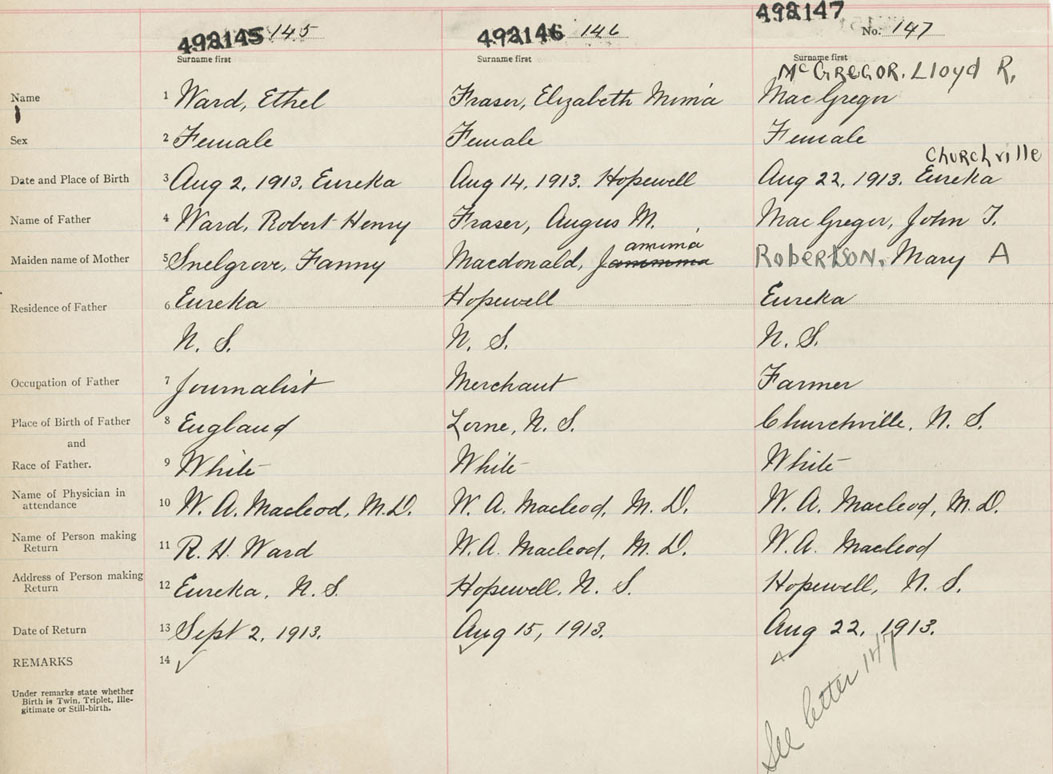 492145 145 492146 146 492147 No. 147
Surname first Surname first Surname first
McGREGOR, Lloyd R,
Name 1 Ward, Ethel Fraser, Elizabeth Mimia MacGregor
Sex 2 Female Female Female
Churchville
Date and Place of Birth 3 Aug 2, 1913. Eureka Aug 14, 1913. Hopewell Aug 22, 1913. Eureka
Name of Father 4 Ward, Robert Henry Fraser, Angus M. MacGregor, John T.
amima
Maiden name of Mother 5 Snelgrove, Fanny Macdonald, J RoberTSON, Mary A
Residence of Father 6 Eureka Hopewell Eureka
N. S. N. S. N. S.
Occupation of Father 7 Journalist Merchant Farmer
Place of Birth of Father 8 England Lorne, N. S. Churchville, N. S.
and
Race of Father. 9 White White White
Name of Physician in
attendance 10 W. A. Macleod, M.D. W. A. Macleod, M. D. W. A. Macleod, M.D.
Name of Person making
Return 11 R. H. Ward W. A. Macleod, M. D. W. A. Macleod
Address of Person making
Return 12 Eureka, N. S. Hopewell, N. S. Hopewell, N. S.
Date of Return 13 Sept 2, 1913. Aug 15, 1913. Aug 22, 1913.
REMARKS 14
Under remarks state whether
Birth is Twin, Triplet, Ille-
gitimate or Still-birth.
See letter 147